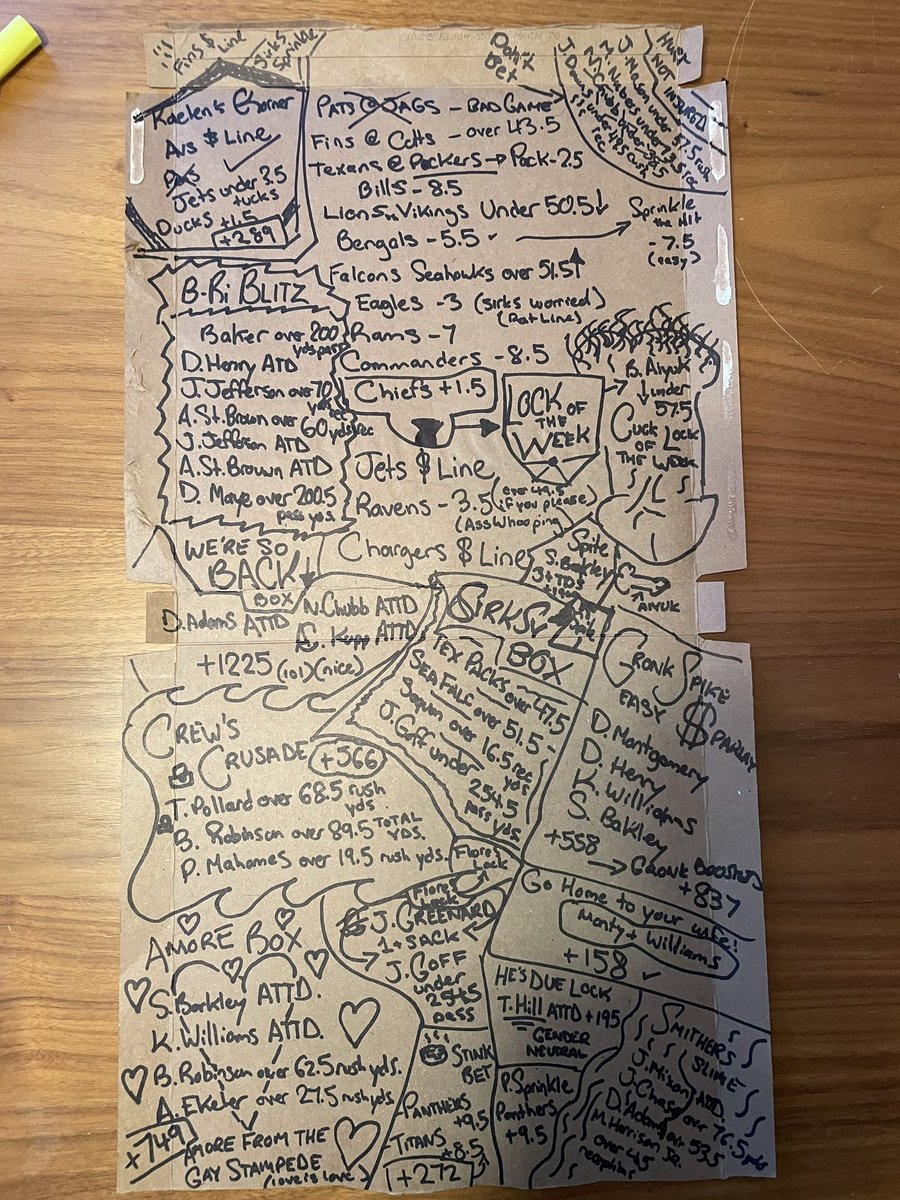 Fins $ Line
Sirks
Sprinkle
Don't
Bet
HURT
NOT INSURED
J. Mason under 57.5 rush
M. Nabers under 73.5 rec
Kaelen's Corner
Avs $ Line
Jets under 3.5
tucks
Ducks +1.5
+289
PATS @ JAGS - BAD GAME
Fins @ Colts - over 43.5
Texans @ Packers → Pack -2.5
Bills - 8.5
Lions Vikings Under 50.5↓
Bengals - 5.5
Sprinkle
the Alt
-7.5
(easy)
Falcons Seahawks over 51.5↑
Eagles -3 (sirks worried)
(Rat Line)
Rams -7
Commanders -8.5
Chiefs +1.5
LOCK OF
THE
WEEK
B. Aiyuk
under
57.5
CUCK LOCK
OF
THE WEEK
Jets $ Line
Ravens - 3.5 (over 49.5
if you please)
(Ass Whooping)
Chargers $ Line
B-Ri BLITZ
Baker over 200
yds pass
D. Henry ATD
J. Jefferson over 70
yds rec
A. St. Brown over 60 yds rec
J. Jefferson ATD
A. St. Brown ATD
D. Maye over 200.5
pass yds.
WE'RE SO
BACK
BOX
D. Adams ATTD
N. Chubb ATTD
C. Kupp ATTD
+1225 (101) (nice)
Spite
S. Barkley
3+ TDS
AIYUK
SIRKSY
BOX
TEX PACKS over 47.5
SEA FALC over 51.5
Saquon over 16.5 rec
yds
J. Goff under
254.5
pass yds
GRONK SPIKE
EASY $ PARLAY
D. Montgomery
D. Henry
K. Williams
S. Bakley
+558
→ GRONK BOOSTED
+837
CREW'S
CRUSADE +566
T. Pollard over 68.5 rush
yds.
B. Robinson over 89.5 TOTAL
YDS.
P. Mahomes over 19.5 rush yds.
Flores
Lock
Flores
Lock
J. GREENARD
1+ SACK
J. GOFF
under
254.5
pass
Go Home to your wife!
Monty + Williams
+158
AMORE BOX
S. Barkley ATTD.
K. Williams ATTD.
B. Robinson over 62.5 rush yds.
A. Ekeler over 27.5 rush yds.
+749
AMORE FROM THE
GAY STAMPEDE
(love is love)
STINK
BET
-PANTHERS
+9.5
-TITANS
+8.5
+272
HE'S DUE LOCK
T. Hill ATTD +195
GENDER
NEUTRAL
P. Sprinkle
Panthers
+9.5
SMITHERS
SLIME
J. Mixon ATTD.
J. Chase over 76.5 yds
D. Adams over 53.5
M. Harrison Jr.
over 4.5
receptions